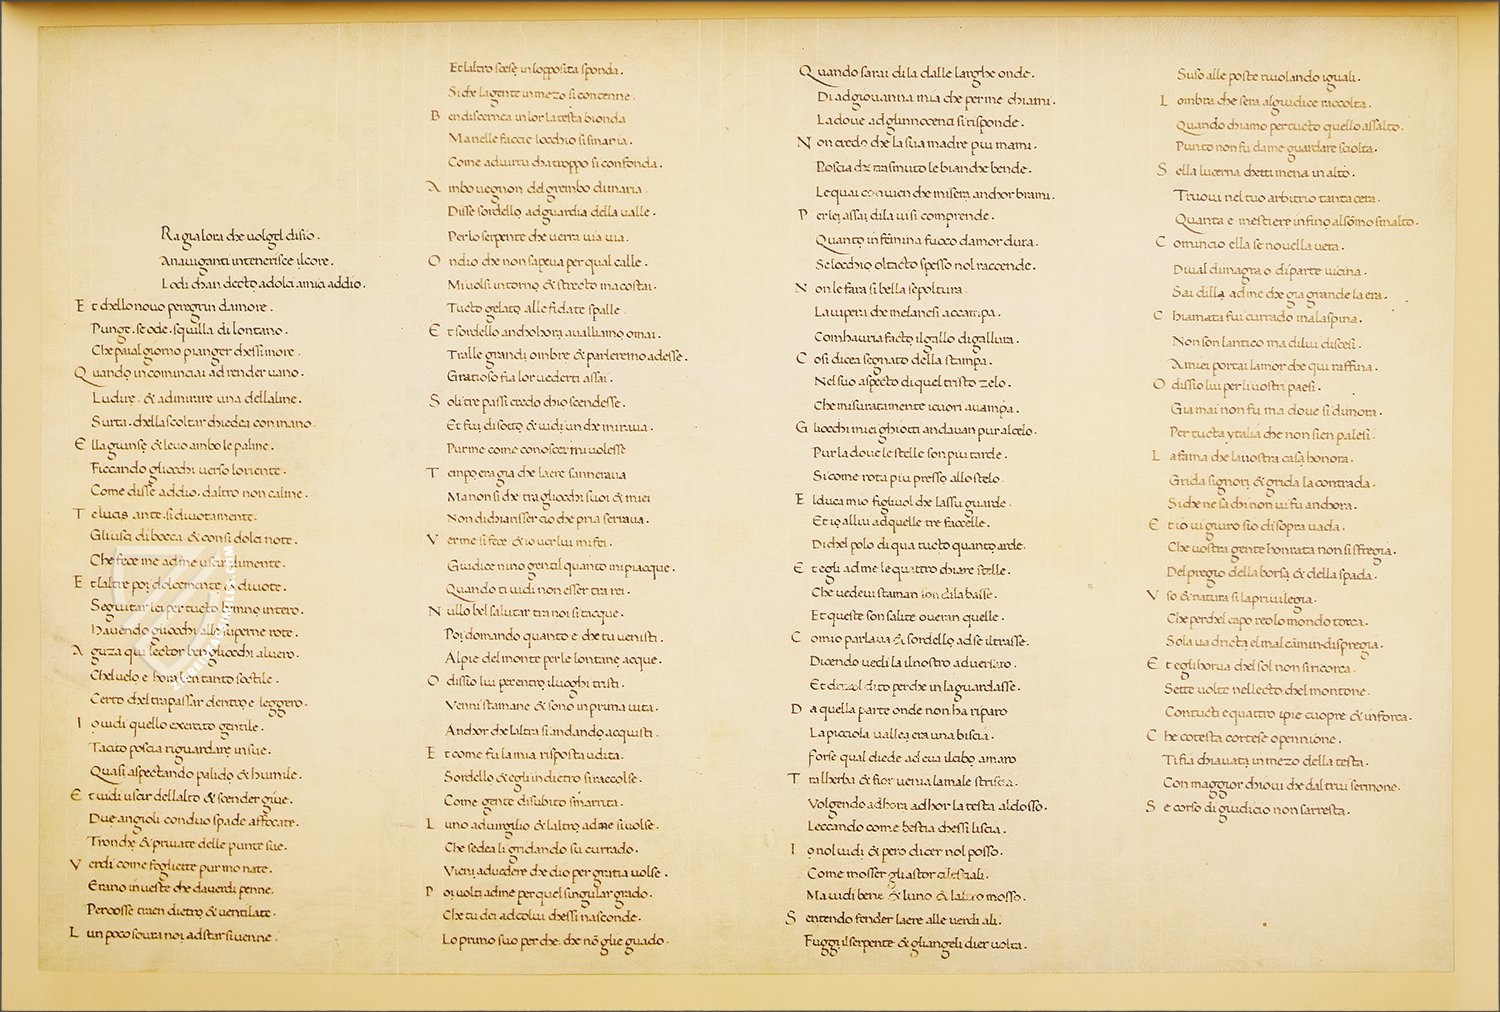 Ra gia lora che volgel disio.
Anaviganti intenerisce ilcore.
Lodi chan decto adolci amici addio.
E t chello novo peregrin damore.
Punge. se ode. squilla di lontano.
Che paia lgiorno pianger chessi more.
Quando incominciai ad render vano.
Ludire. & admirare una dellalme.
Surta. chella scoltar chiedea con mano.
E lla giunse & levo ambo le palme.
Ficcando gliocchi verso loriente.
Come disse addio. daltro non calme.
T e lucis ante. si divotamente.
Gliusci di bocca & con si dolci note.
Che fece me ad me uscir di mente.
E t laltre poi dolcemente & divote.
Seguitar lei per tucto lymno intero.
Havendo gliocchi alle superne rote.
A guza qui lector ben gliocchi alvero.
Chel velo e hora ben tanto soctile.
Certo chel trapassar dentro e leggero.
I o vidi quello exercito gentile.
Tacito poscia riguardare in sue.
Quasi aspectando palido & humile.
E t vidi uscir dellalto & scender giue.
Due angioli con duo spade affocate.
Tronche & private delle punte sue.
V erdi come fogliette pur mo nate.
Erano in veste che da verdi penne.
Percosse traen dietro & ventilate.
L un poco sovra noi ad star si venne.
Et laltro scese in lopposita sponda.
Si che la gente in mezo si contenne.
B en discernea in lor la testa bionda
Ma nelle faccie locchio si smaria.
Come ad virtu cha troppo si confonda.
A mbo vegnon del grembo di maria
Disse sordello ad guardia della valle.
Per lo serpente che verra via via.
O nd io che non sapeva per qual calle.
Mi volsi intorno & strecto macostai.
Tucto gelato alle fidate spalle
E t sordello anchohora avalliamo omai.
Tralle grandi ombre & parleremo adesse.
Gratioso fia lor vedervi assai.
S oli tre passi credo chio scendesse.
Et fui disoto & vidi un che mirava.
Pur me come conoscer mi volesse
T empo era gia che laere sannerava
Ma non si che tra gliocchi suoi & miei
Non dichiarisser cio che pria serrava.
V er me si fece & io ver lui mi fei.
Giudice nino gentil quanto mi piacque.
Quando ti vidi non esser tra rei.
N ullo bel salutar tra noi si tacque.
Poi domando quanto e che tu venisti.
Alpie del monte per le lontane acque.
O dissio lui per entro iluoghi tristi.
Venni stamane & sono in prima vita.
Anchor che laltra si andando acquisti.
E t come fu la mia risposta udita.
Sordello & egli indietro si raccolse.
Come gente di subito smarrita.
L uno ad virgilio & laltro ad me si volse.
Che sedea li gridando su currado.
Vieni ad vedere che dio per gratia volse.
P oi volti ad me per quel singular grado.
Che tu dei ad colui chessi nasconde.
Lo primo suo per che. che nõ glie guado.
Quando sarai di la dalle larghe onde.
Di ad giovanna mia che per me chiami.
La dove ad glinnocenti si risponde.
N on credo che la sua madre piu mami.
Poscia che trasmuto le bianche bende.
Le quai convien che misera anchor brami.
P er lei assai di la vi si comprende.
Quanto in femina fuoco damor dura.
Se locchio oltacto spesso nol raccende.
N on le fara si bella sepoltura.
La vipera che melanesi accampa.
Comhavria facto ilgallo di gallura.
C osi dicea segnato della stampa.
Nel suo aspecto di quel tristo zelo.
Che misuratamente icuori avampa.
G liocchi miei ghiotti andavan pur alcelo.
Pur la dove le stelle son piu tarde.
Si come rota piu presso allo stelo.
E lduca mio figliuol che lassu guarde.
Et io allui ad quelle tre faccelle.
Di chel polo di qua tucto quanto arde.
E t egli ad me le quattro chiare stelle.
Che vedevi staman son di la basse.
Et queste son salite overan quelle.
C om io parlava & sordello ad se iltrasse.
Dicendo vedi la ilnostro adversaro.
Et drizol dito perche in la guardasse.
D a quella parte onde non ha riparo
La picciola vallea era una biscia.
Forse qual diede ad eva ilcibo amaro
T ra lherba & fior venia la male striscia.
Volgendo adhora adhor la testa aldosso.
Leccando come bestia chessi liscia.
I o nol vidi & pero dicer nol posso.
Come mosser gli astor celestiali.
Ma vidi bene & luno & laltro mosso.
S entendo fender laere alle verdi ali.
Fuggi ilserpente & gliangeli dier volta.
Suso alle poste rivolando iguali.
L ombra che sera algiudice raccolta.
Quando chiamo per tucto quello assalto.
Punto non fu da me guardare sciolta.
S ella lucerna chetti mena in alto.
Truovi nel tuo arbitrio tanta cera.
Quanta e mestiere infino alsõmo smalto.
C omincio ella se novella vera.
Di val di magra o di parte vicina.
Sai dilla ad me che gia grande la era.
C hiamata fui currado malaspina.
Non son lantico ma di lui discesi.
A miei portai lamor che qui raffina.
O dissio lui per li vostri paesi.
Gia mai non fu ma dove si dimora.
Per tucta ytalia che non sien palesi.
L a fama che la vostra casa honora.
Grida signori & grida la contrada.
Si che ne sa chi non vi fu anchora.
E t io vi giuro sio di sopra vada.
Che vostra gente honrata non si sfregia.
Del pregio della borsa & della spada.
V so & natura si la privilegia.
Che perchel capo reo lo mondo torca.
Sola va dricta el mal cãmin dispregia.
E t egli hor va chel sol non si ricorca.
Sette volte nel lecto chel montone.
Con tucti e quattro ipie cuopre & inforca.
C he cotesta cortese opennione.
Ti fia chiavata in mezo della testa.
Con maggior chiovi che daltrui sermone.
S e corso di giudicio non sarresta.